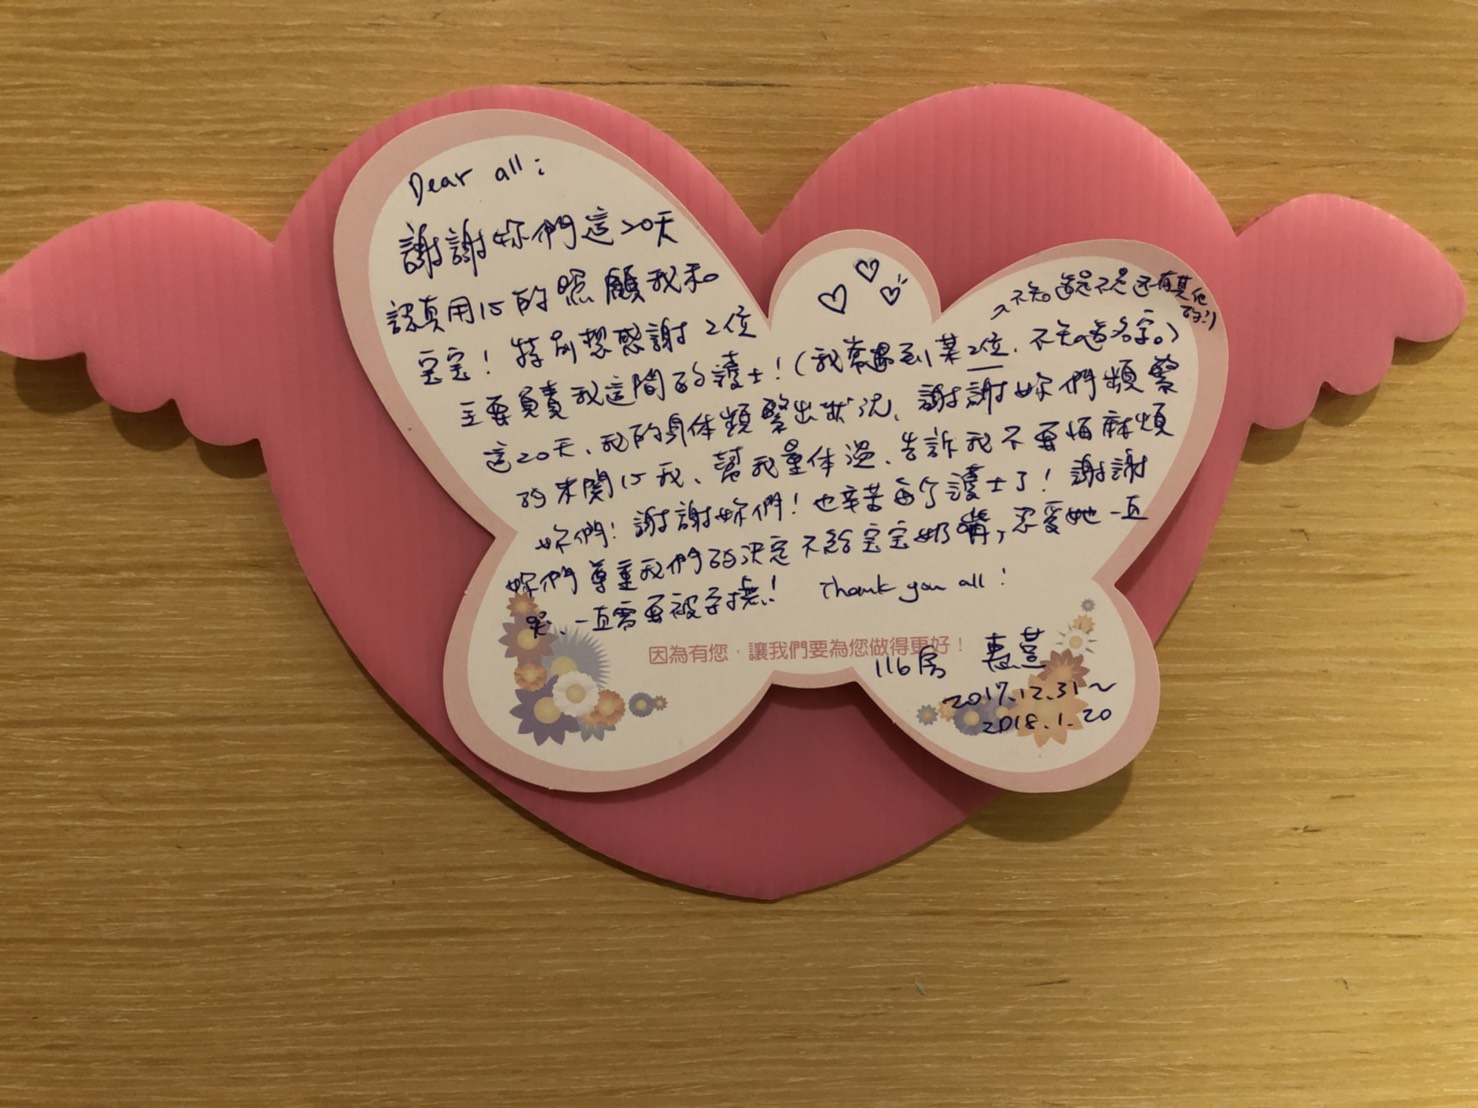 Dear all:
謝謝妳們這20天
認真用心的照顧我和
宝宝！特別想感謝2位
主要負責我這間的護士！(我常遇到某2位，不知道名字。)
(不知道是不是还有其他的!)
這20天、我的身体頻繁出狀況、謝謝妳們頻繁
的來関心我、幫我量体溫、告訴我不要怕麻煩
妳們！謝謝妳們！也辛苦每个護士了！謝謝
妳們尊重我們的決定不給宝宝奶嘴，忍受她一直
哭、一直需要被安撫！ Thank you all!
因為有您，讓我們要為您做得更好！
116房
2017.12.31~
2018.1.20